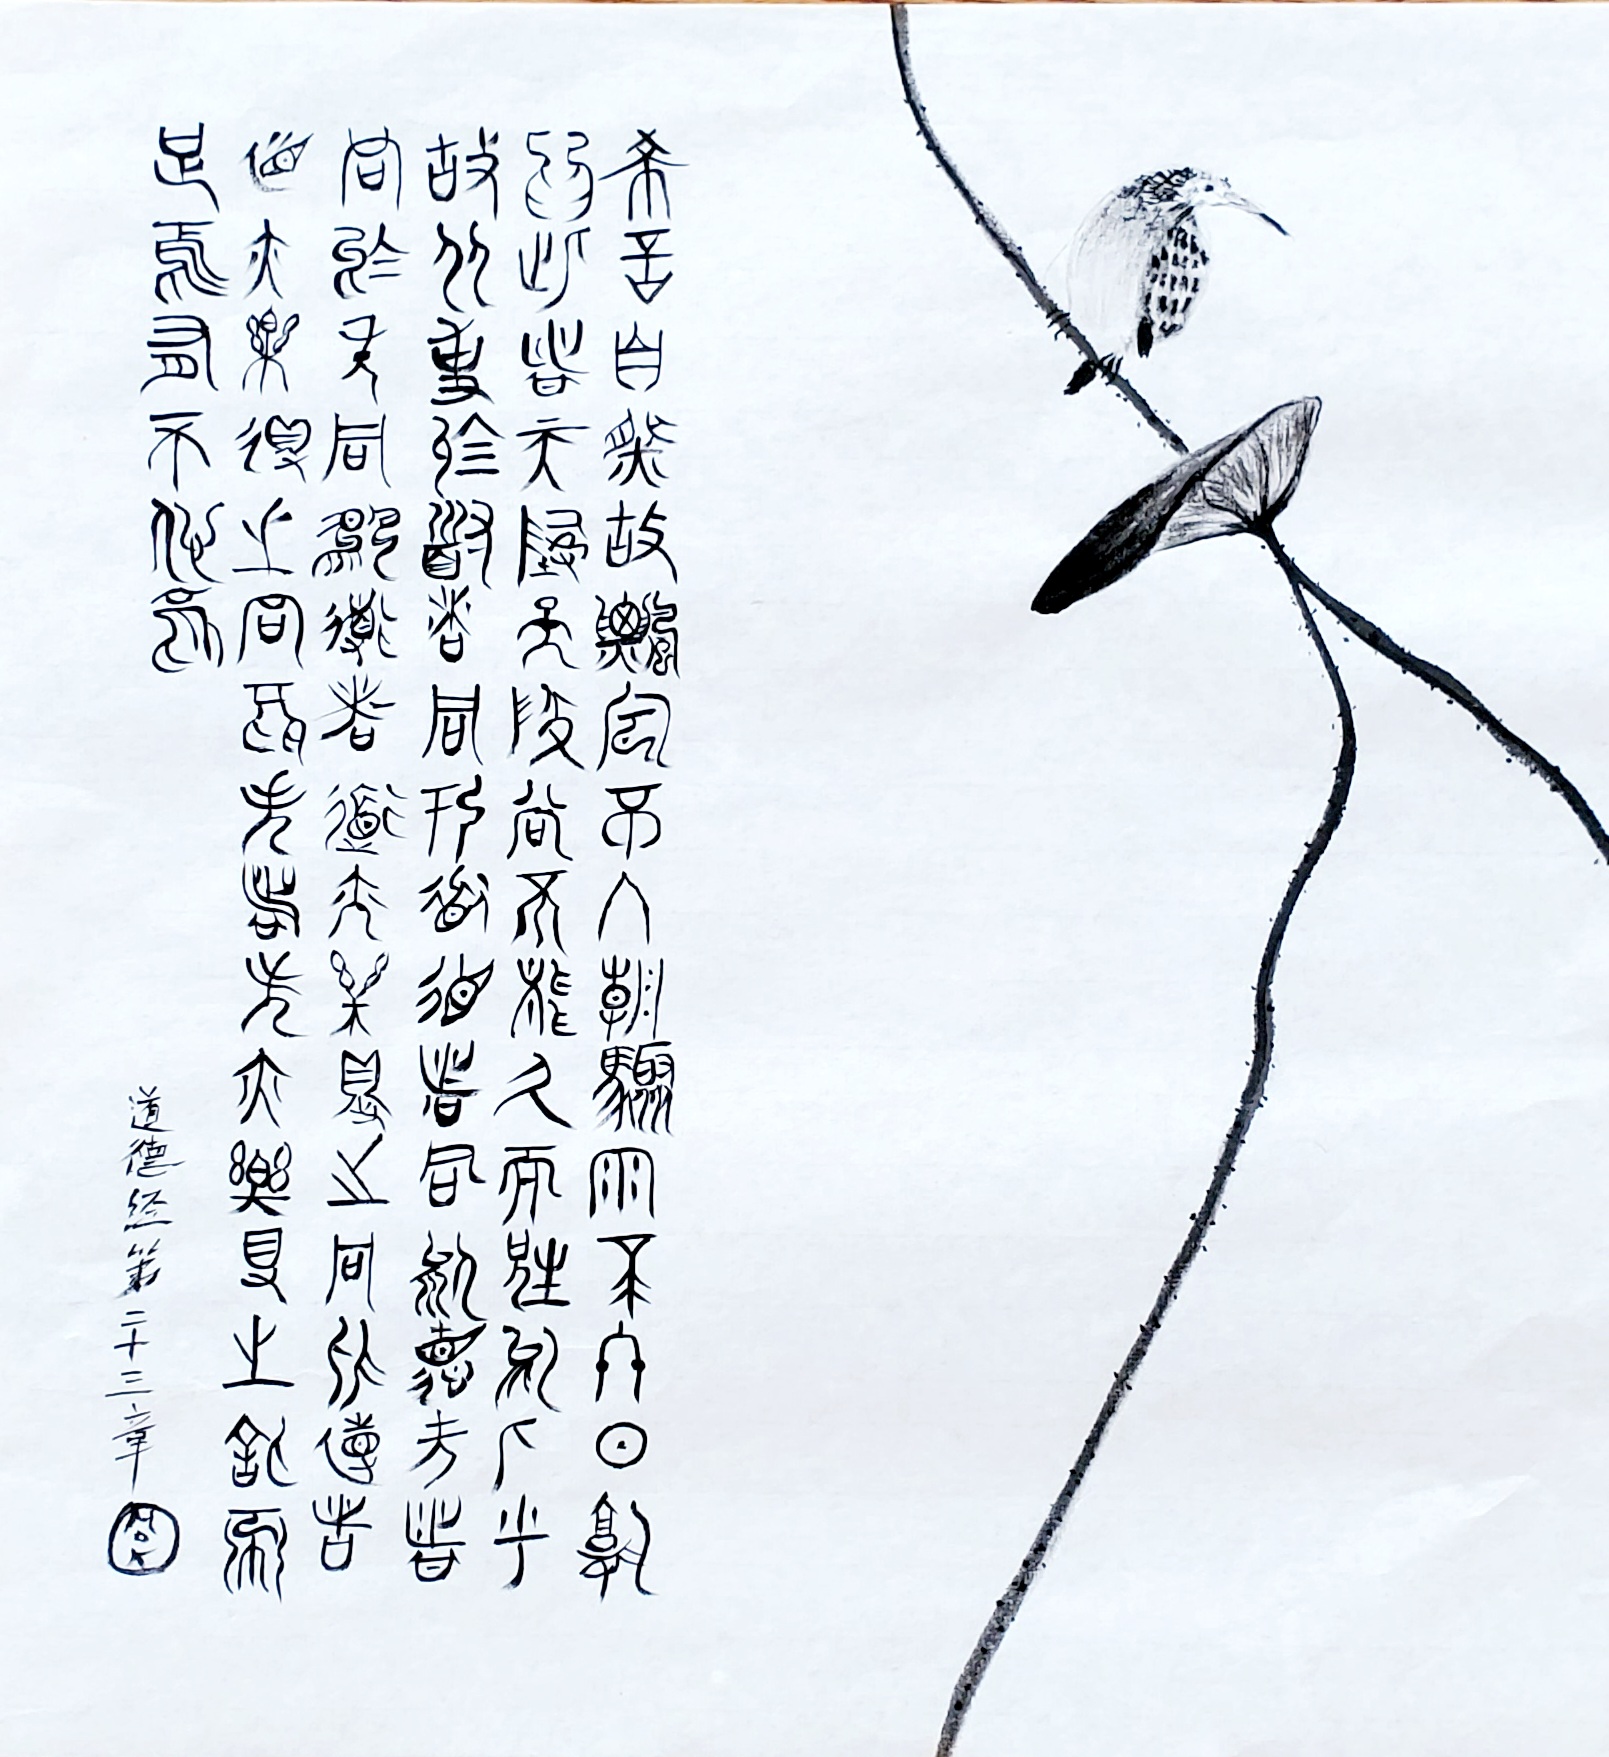 希言自然故飄風不終朝驟雨不終日孰
為此者天地天地尚不能久而況於人乎
故从事於道者同於道德者同於德失者
同於失同於道者道亦樂得之同於德者
德亦樂得之同於失者失亦樂得之信不
足焉有不信焉
道德经第二十三章